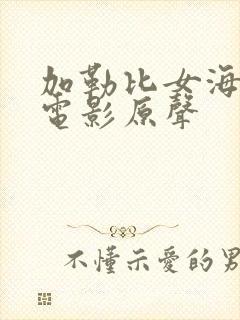 加勒比女海
電影原聲
不懂示愛的男